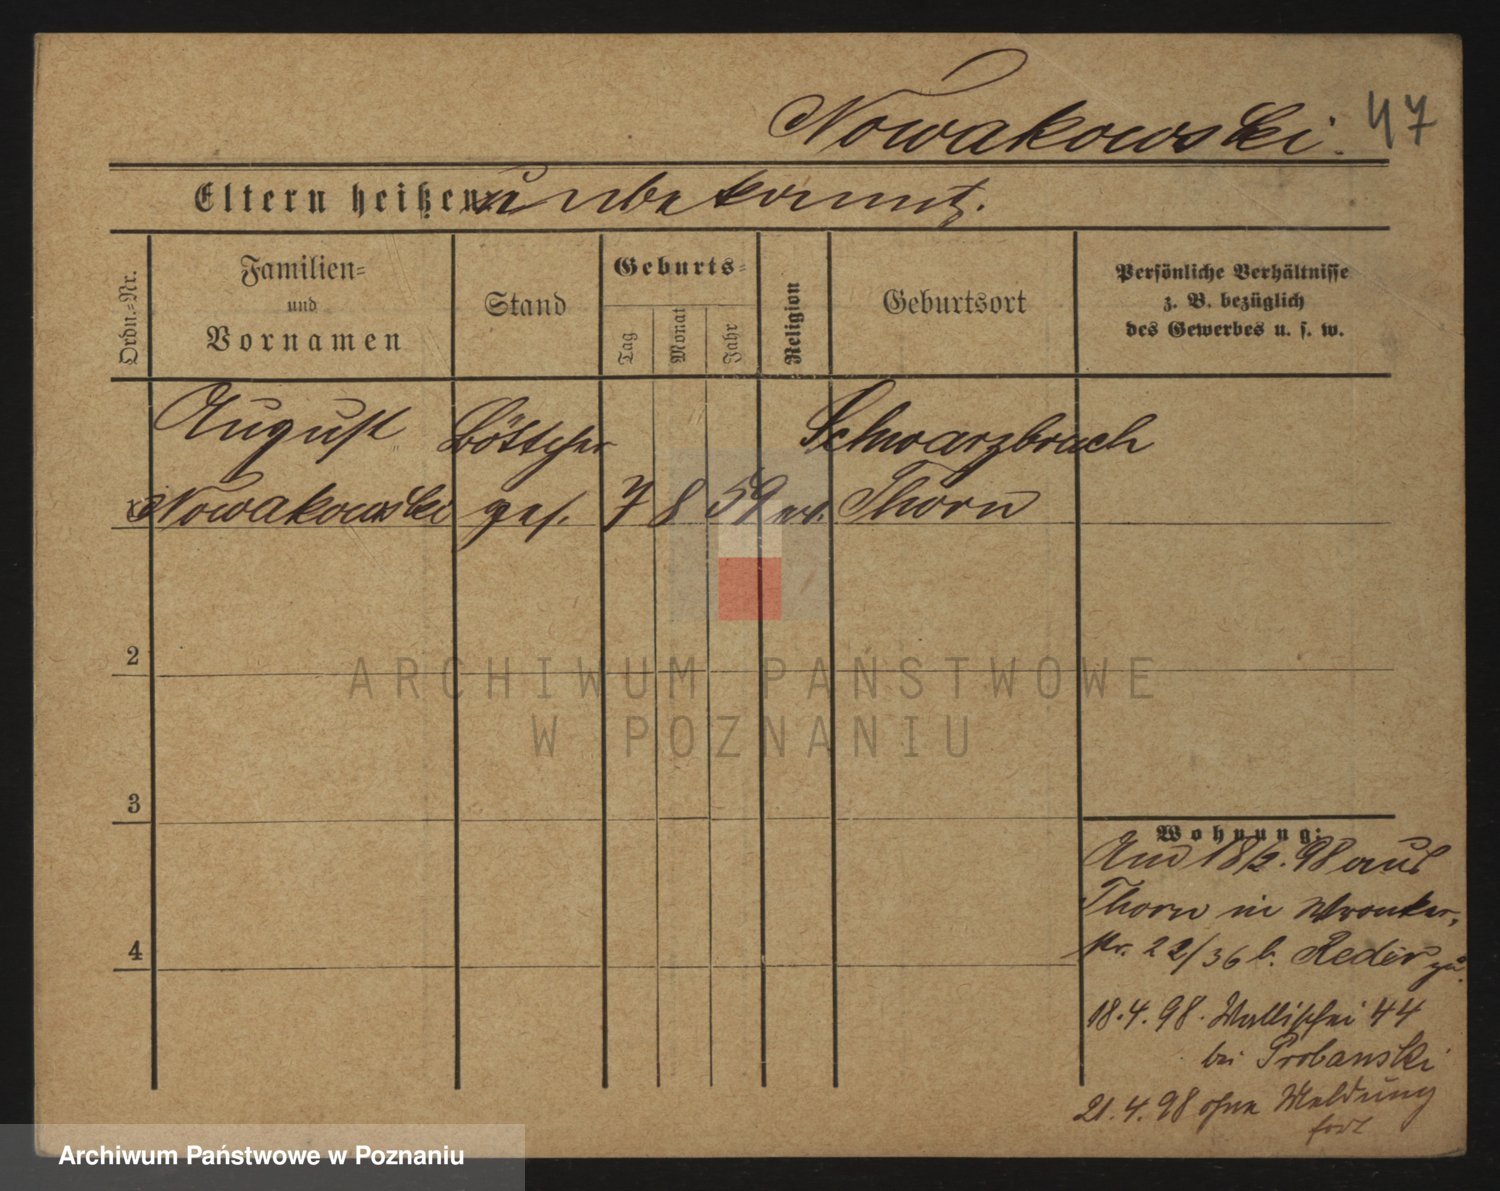 Nowakowski. 47
Eltern heißen: unbekannt.
Ordn.-Nr.
Familien-
und
Vornamen
Stand
Geburts-
Tag
Monat
Jahr
Religion
Geburtsort
Persönliche Verhältnisse
z. B. bezüglich
des Gewerbes u. s. w.
August Böttcher Schwarzbruch
1 Nowakowski ges. 7 8 59 ev. Thorn
2
3
4
Wohnung:
Am 18/2. 98 aus
Thorn in Wronker-
str. 22/36 b. Reder zu.
18.4.98. Wallischei 44
bei Probanski
21.4.98 ohne Meldung
fort
ARCHIWUM PAŃSTWOWE
W POZNANIU
Archiwum Państwowe w Poznaniu